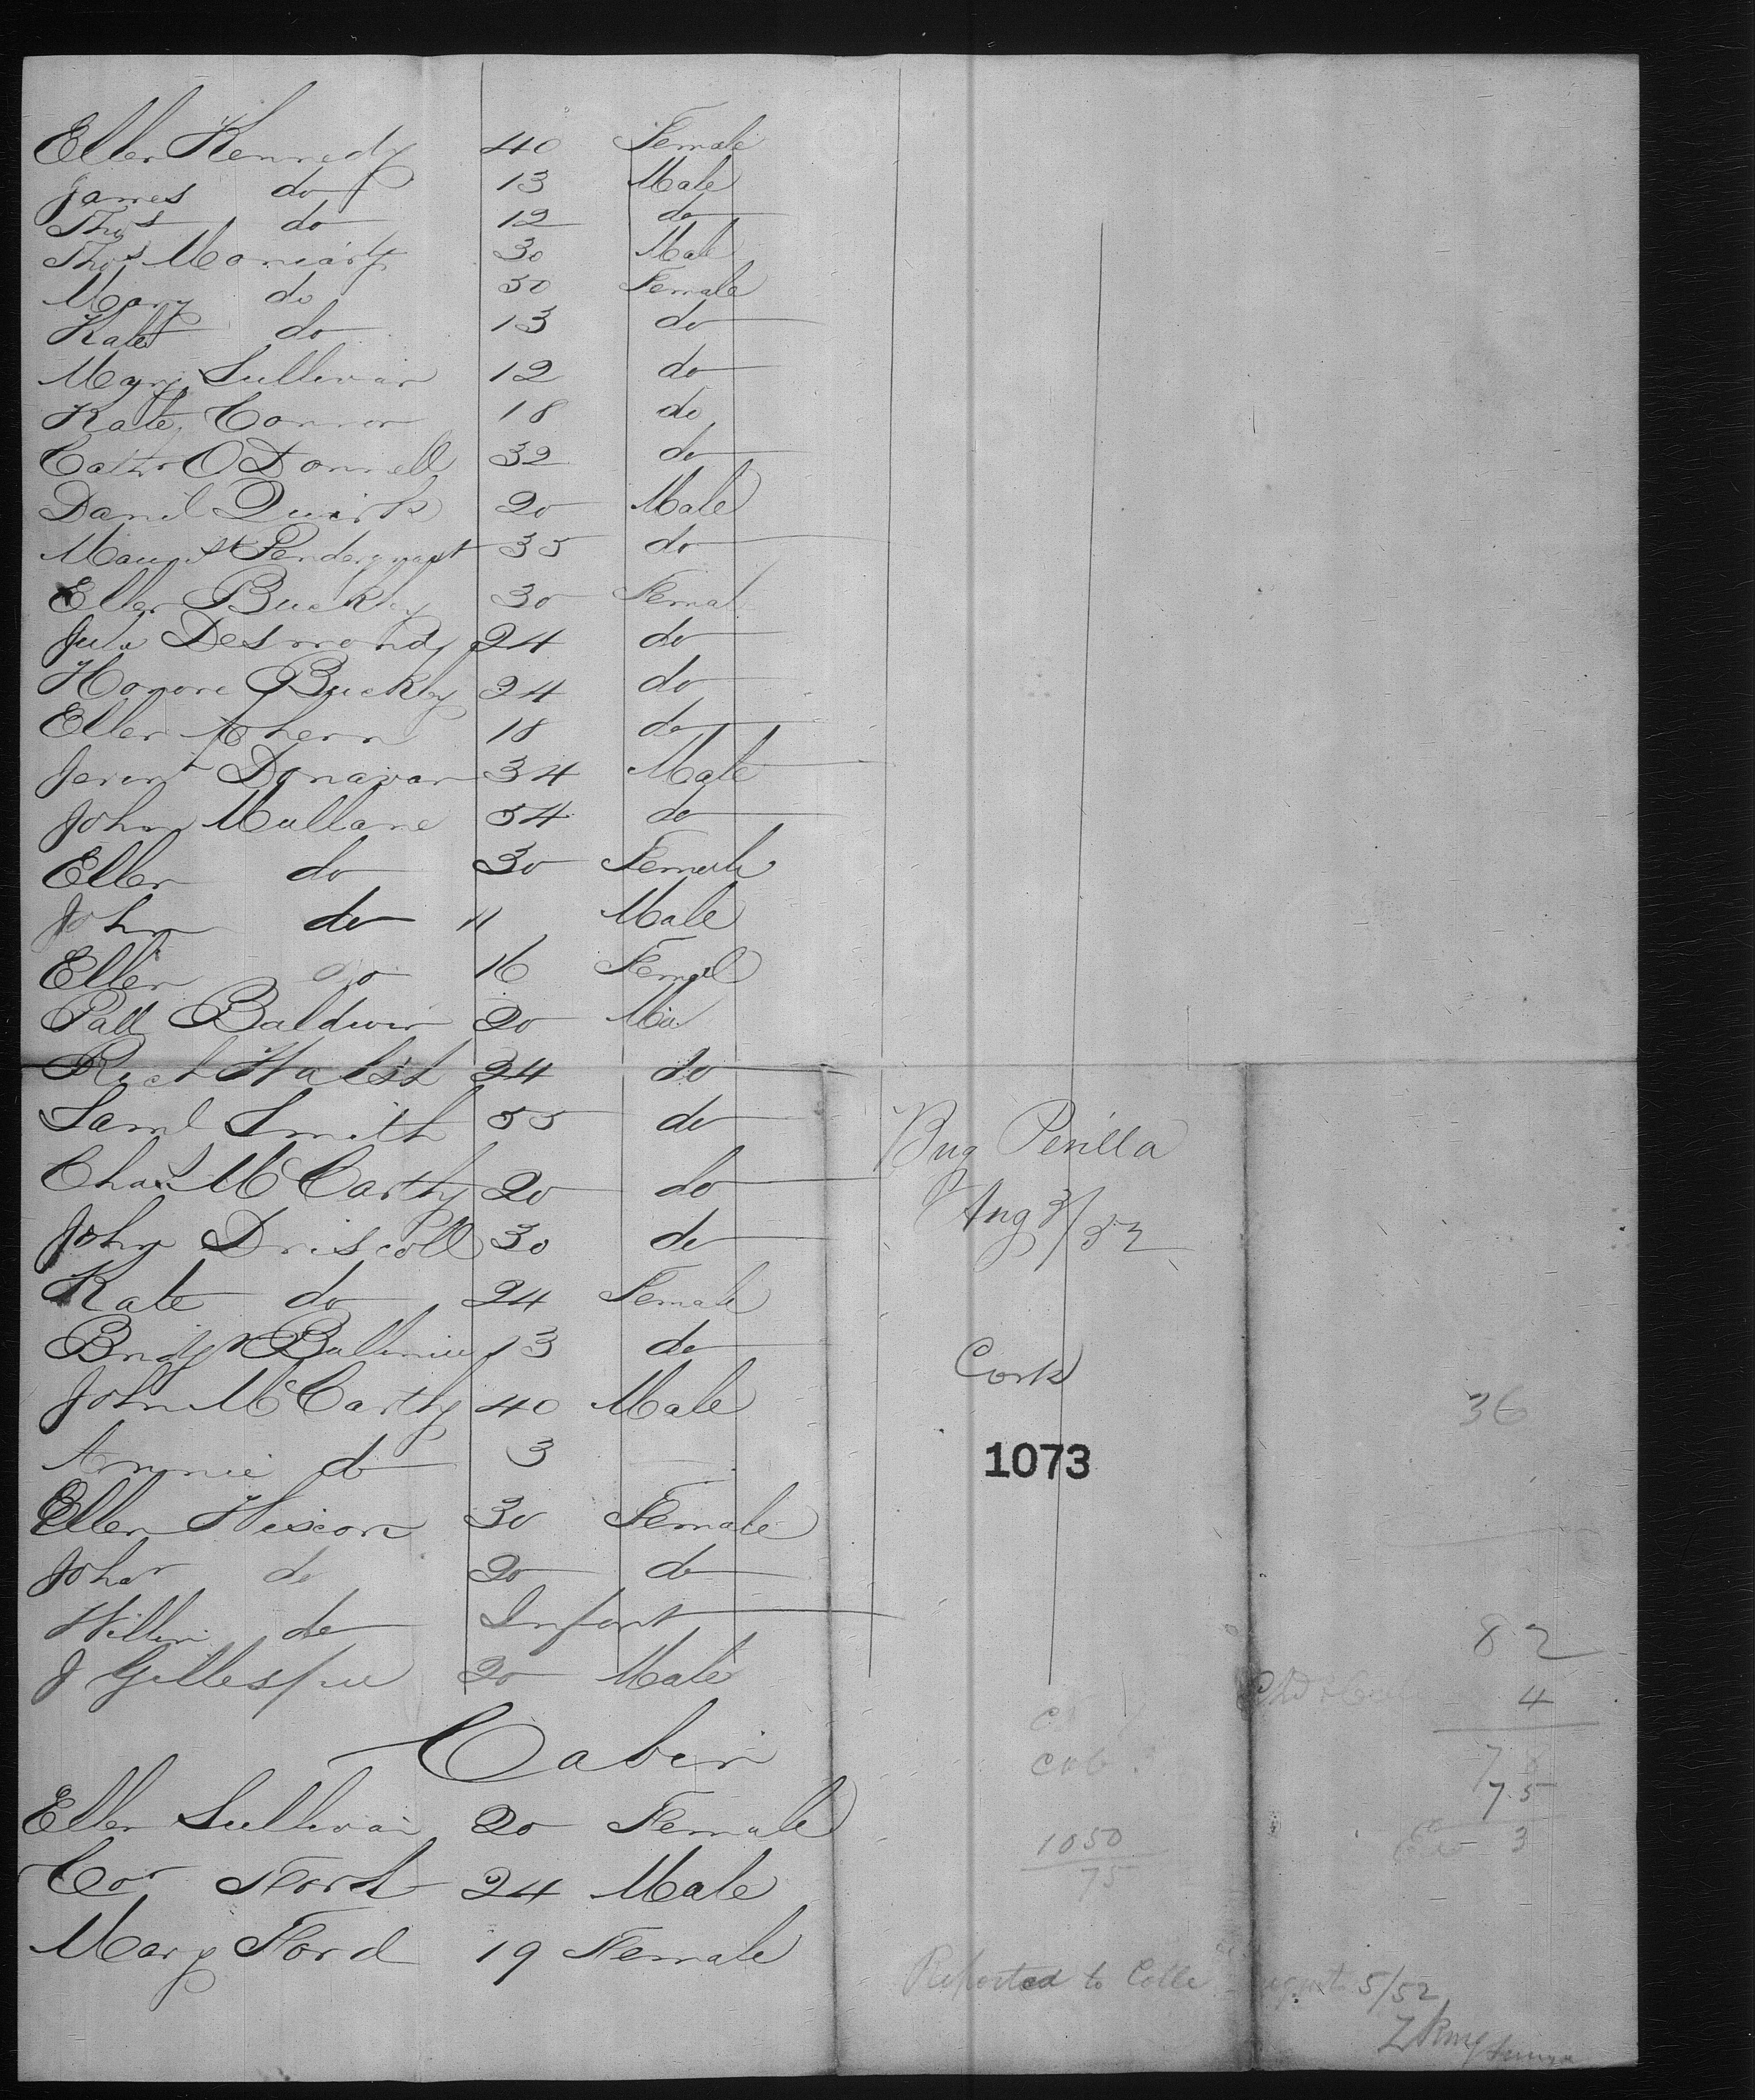 Ellen Kennedy 40 Female
James do 13 Male
Thos do 12 do
Thos Moriarty 30 Male
Mary do 30 Female
Kate do 13 do
Mary Sullivan 12 do
Kate Connor 18 do
Cathr O Donnell 32 do
Danil Quirk 20 Male
Pendergrast 35 do
Ellen Buckley 30 Femal
Julia Desmond 24 do
Honore Buckly 24 do
Ellen Ahern 18 do
Jerem Donavan 34 Male
John Mullane 54 do
Ellen do 30 Female
John do 11 Male
Ellen do 16 Femal
Patt Baldwin 20 Ma
Rich Walsh 24 do
Saml Smith 55 do
Chas McCarthy 20 do
John Driscoll 30 do
Kate do 24 Female
Bridgt 13 do
John McCarthy 40 Male
Annie do 3
Ellen 30 Female
Johan do 20 do
Willm do Infant
J Gillespie 20 Male
Cabin
Ellen Sullivan 20 Female
Cor Ford 24 Male
Mary Ford 19 Female
Brig Perilla
Aug 3/52
Cork
1073
cab
1050
75
36
82
4
7
75
3
Reported to Colle August 5/52